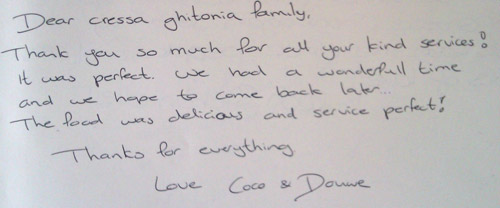 Dear cressa ghitonia family,
Thank you so much for all your kind services!
It was perfect. We had a wonderfull time
and we hope to come back later...
The food was delicious and service perfect!
Thanks for everything
Love Coco & Douwe